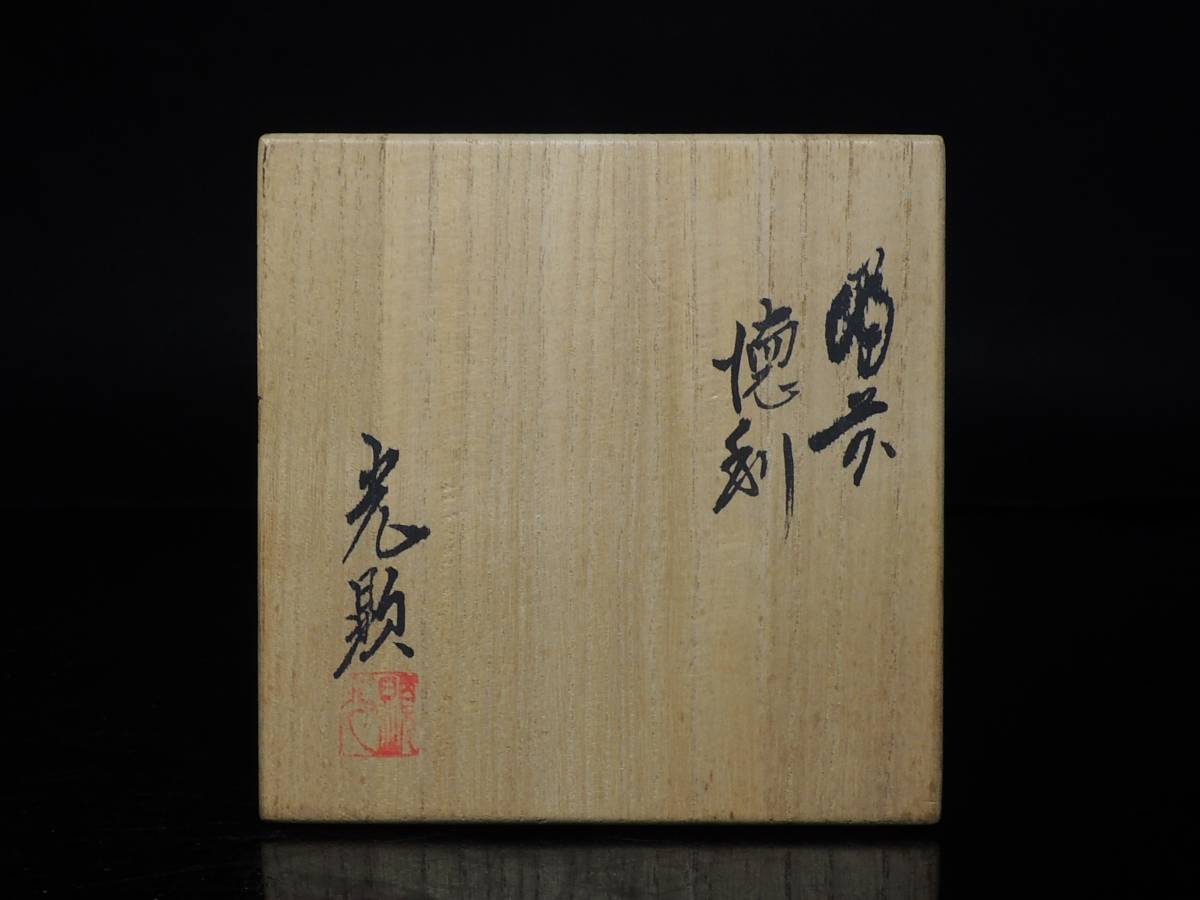 備前
徳利
光顕